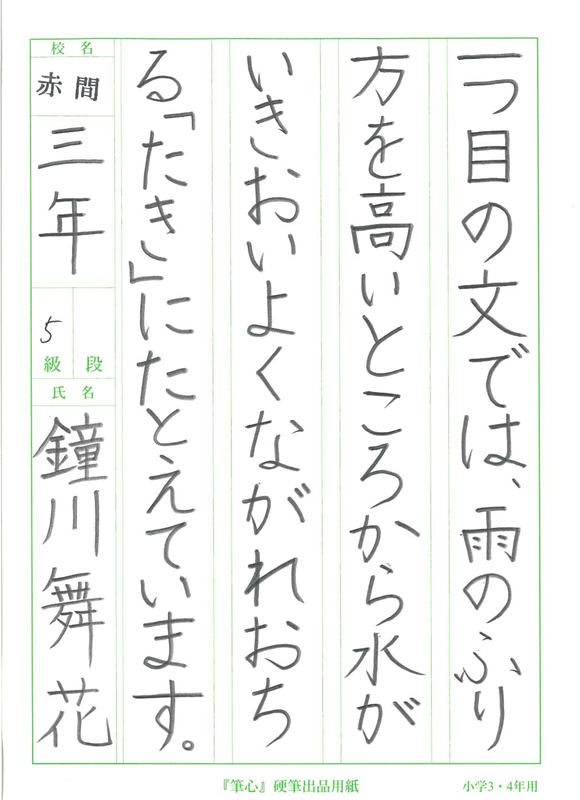 一つ目の文では、雨のふり
方を高いところから水が
いきおいよくながれおち
る「たき」にたとえています。
校名
赤間
三年
5
級 段
氏名
鐘川舞花
『筆心』硬筆出品用紙
小学3・4年用